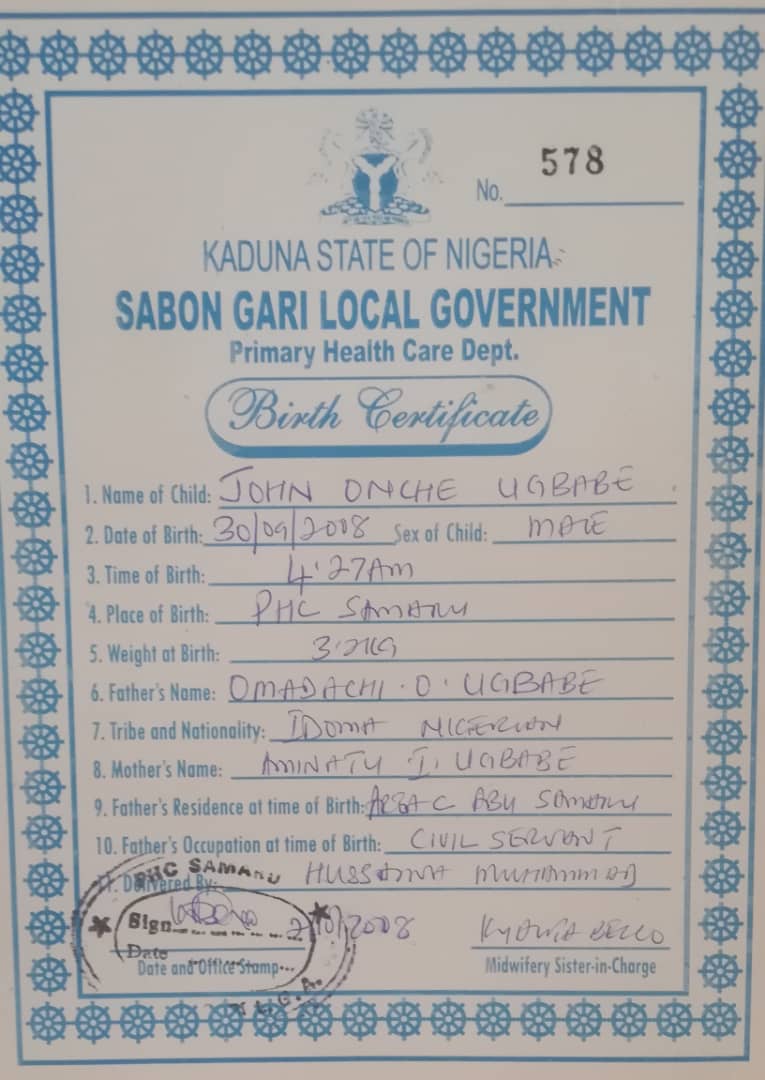 No. 578
KADUNA STATE OF NIGERIA
SABON GARI LOCAL GOVERNMENT
Primary Health Care Dept.
Birth Certificate
1. Name of Child: JOHN ONCHE UGBABE
2. Date of Birth: 30/09/2008 Sex of Child: MALE
3. Time of Birth: 4:27AM
4. Place of Birth: PHC SAMARU
5. Weight at Birth: 3.2KG
6. Father's Name: OMADACHI . O . UGBABE
7. Tribe and Nationality: IDOMA NIGERIAN
8. Mother's Name: AMINATU I. UGBABE
9. Father's Residence at time of Birth: AREA C ABU SAMARU
10. Father's Occupation at time of Birth: CIVIL SERVANT
11. Delivered By: HUSSAINA MUHAMMAD
PHC SAMARU
Sign 2/10/2008
Date
Date and Office Stamp
Midwifery Sister-in-Charge
L.G.A.